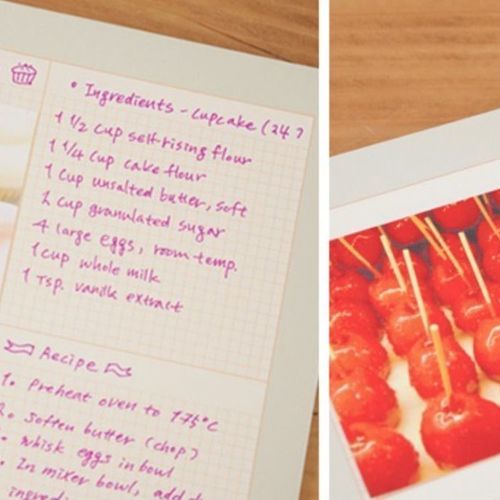 • Ingredients - cupcake (24)
1 1/2 cup self-rising flour
1 1/4 cup cake flour
1 cup unsalted butter, soft
2 cup granulated sugar
4 large eggs, room temp.
1 cup whole milk
1 Tsp. vanilla extract
Recipe
1. Preheat oven to 175°C
2. Soften butter (chop)
• Whisk eggs in bowl
• In mixer bowl, add